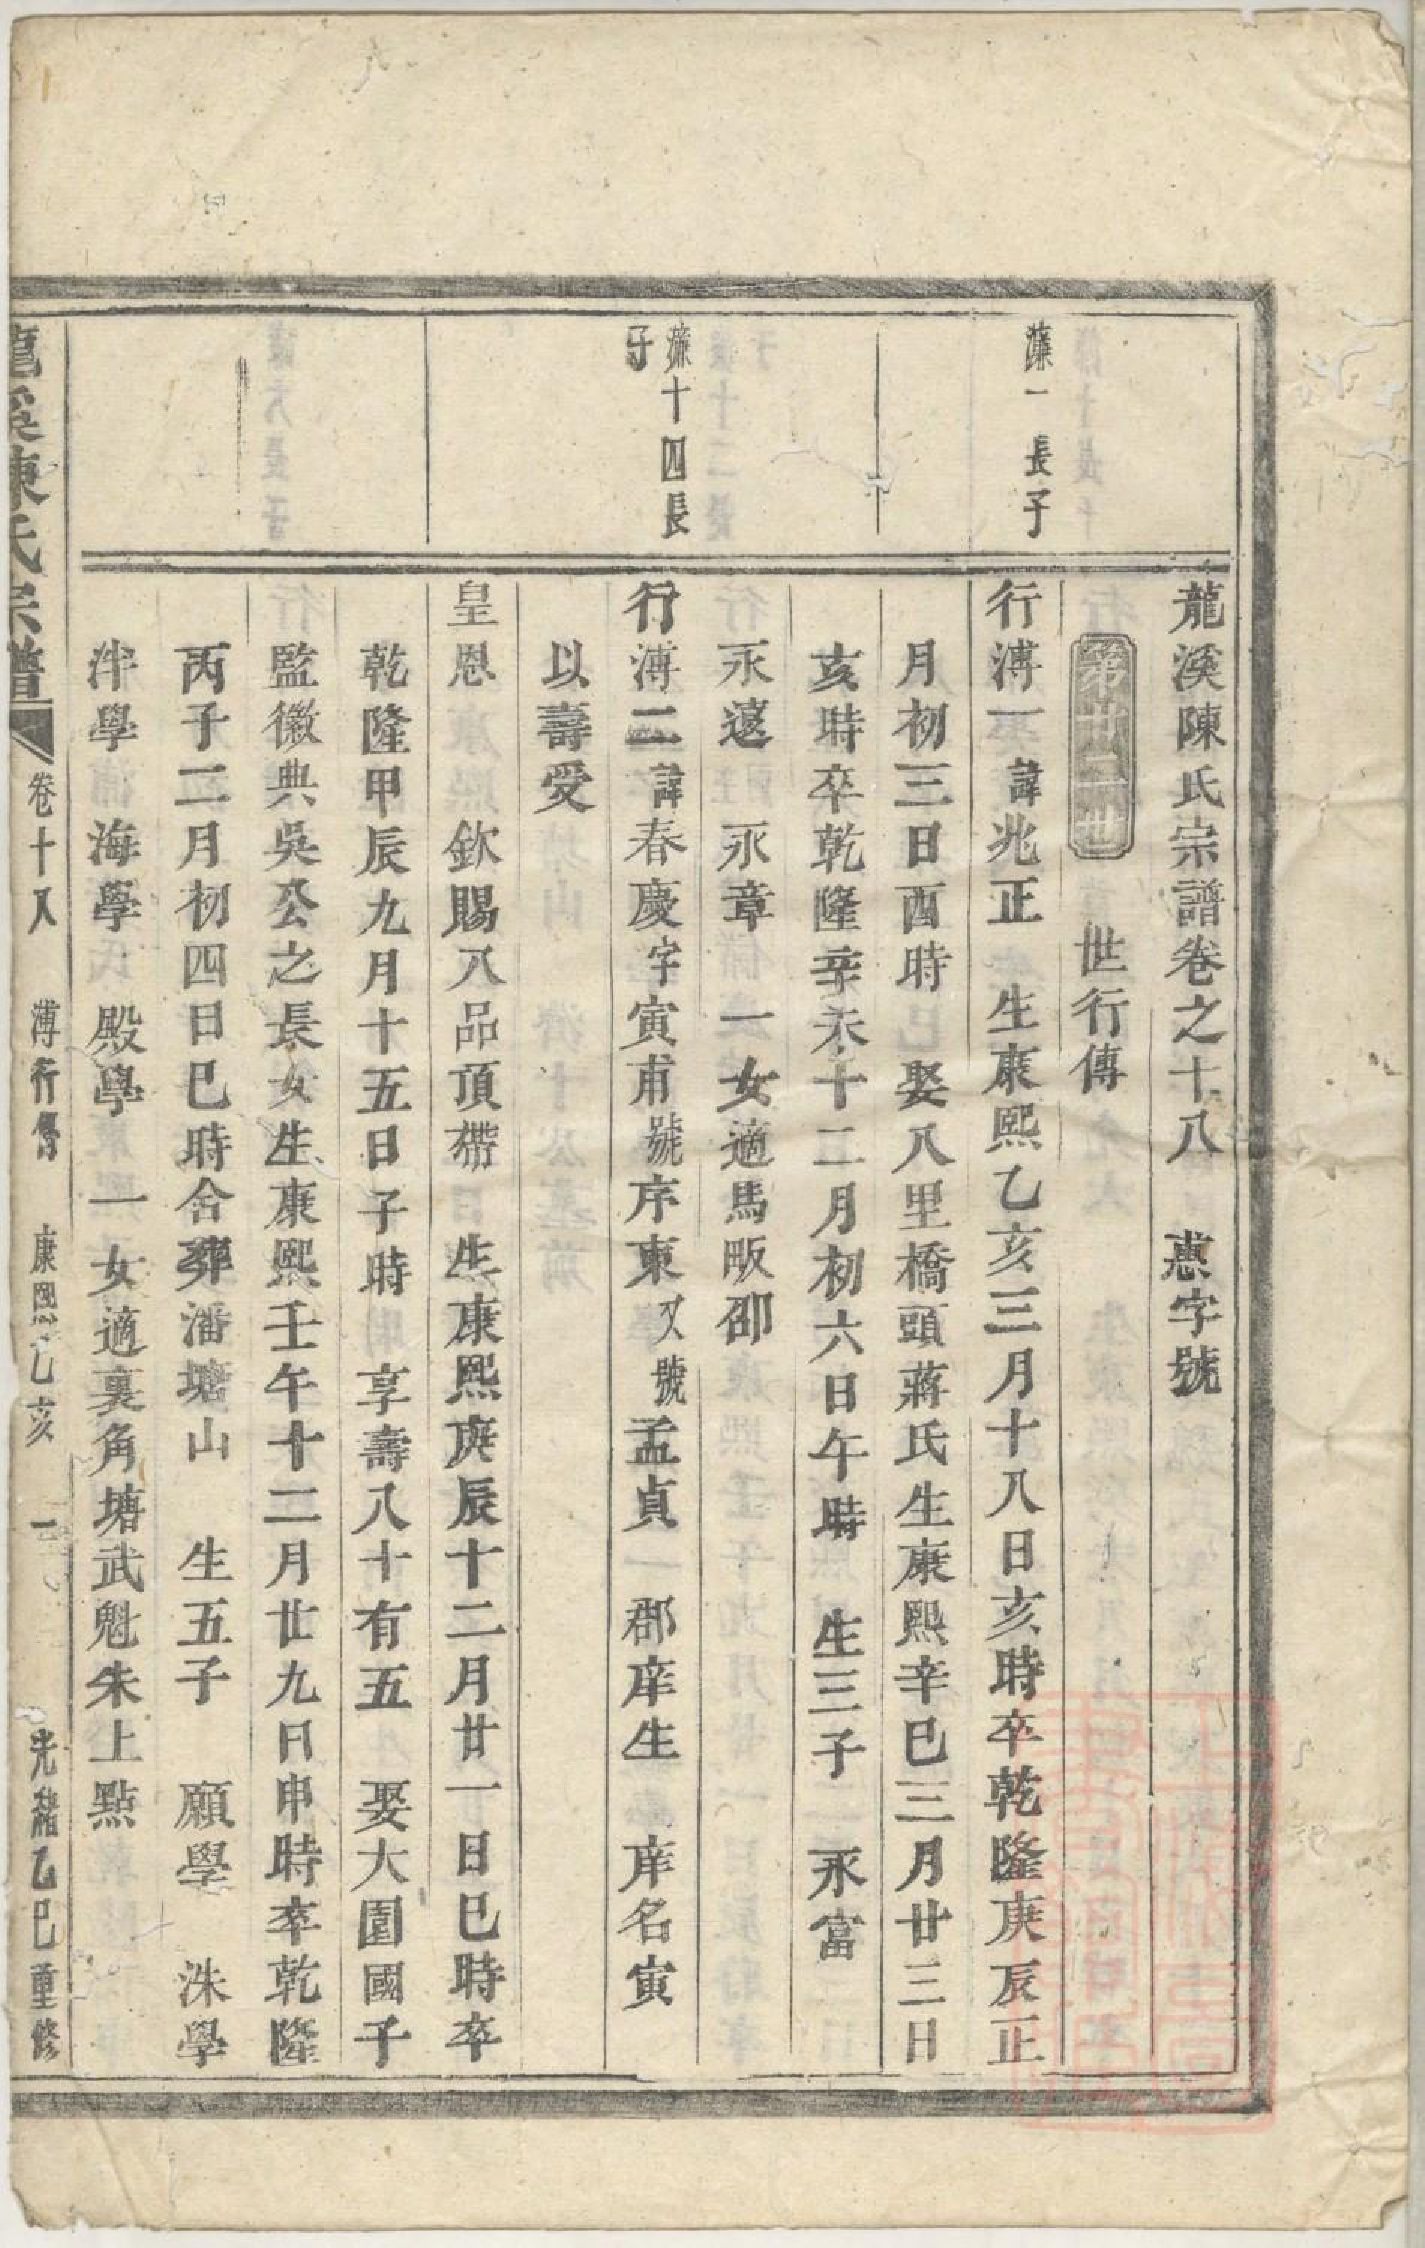 龍溪陳氏宗譜卷之十八　惠字號
第廿二世　世行傳
濂一長子
行溥一諱兆正　生康熙乙亥三月十八日亥時卒乾隆庚辰正
月初三日酉時　娶八里橋頭蔣氏生康熙辛巳三月廿三日
亥時卒乾隆辛未十二月初六日午時　生三子　永富
永遠　永章　一女適馬畈邵
濂十四長
子
行溥二諱春慶字寅甫號序東又號孟貞　郡庠生　庠名寅
以壽受
皇恩　欽賜八品頂帶　生康熙庚辰十二月廿一日巳時卒
乾隆甲辰九月十五日子時　享壽八十有五　娶大園國子
監徽典吳公之長女生康熙壬午十二月廿九日申時卒乾隆
丙子二月初四日巳時合葬潘塘山　生五子　願學　洙學
泮學　海學　殿學　一女適裏角塘武魁朱上點
龍溪陳氏宗譜　卷十八　溥行傳　康熙乙亥　一　光緒乙巳重修